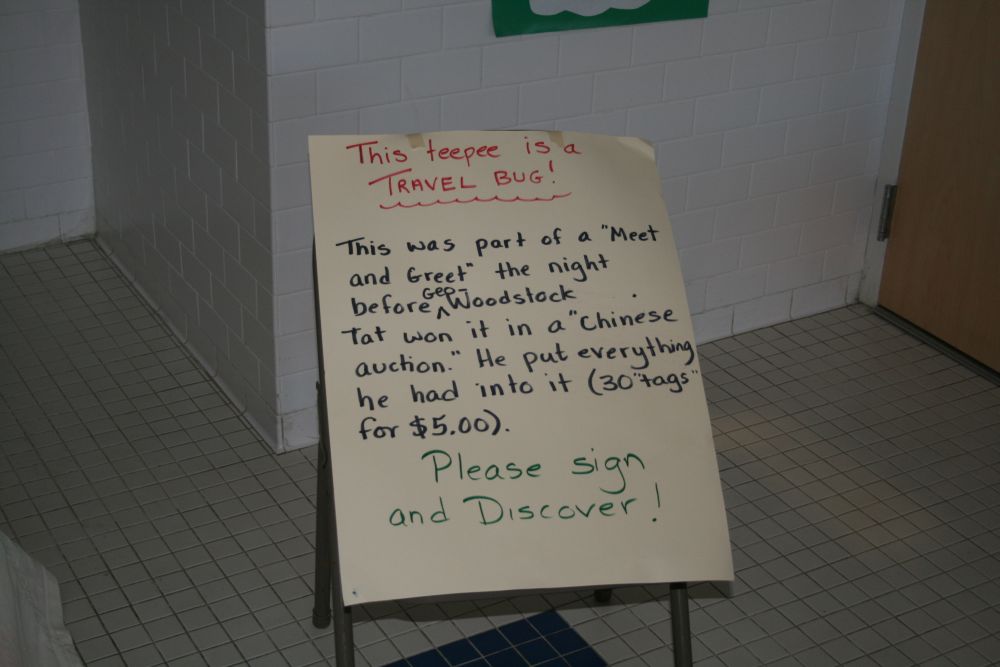 This teepee is a
TRAVEL BUG!
This was part of a "Meet
and Greet" the night
before Geo-Woodstock .
Tat won it in a "Chinese
auction." He put everything
he had into it (30 "tags"
for $5.00).
Please sign
and Discover!